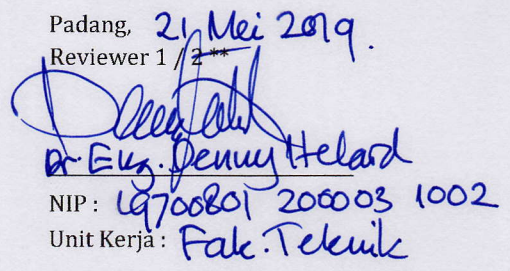 Padang, 21 Mei 2019.
Reviewer 1 / 2 **
Dr. Eng. Denny Helard
NIP : 19700801 200003 1002
Unit Kerja : Fak. Teknik